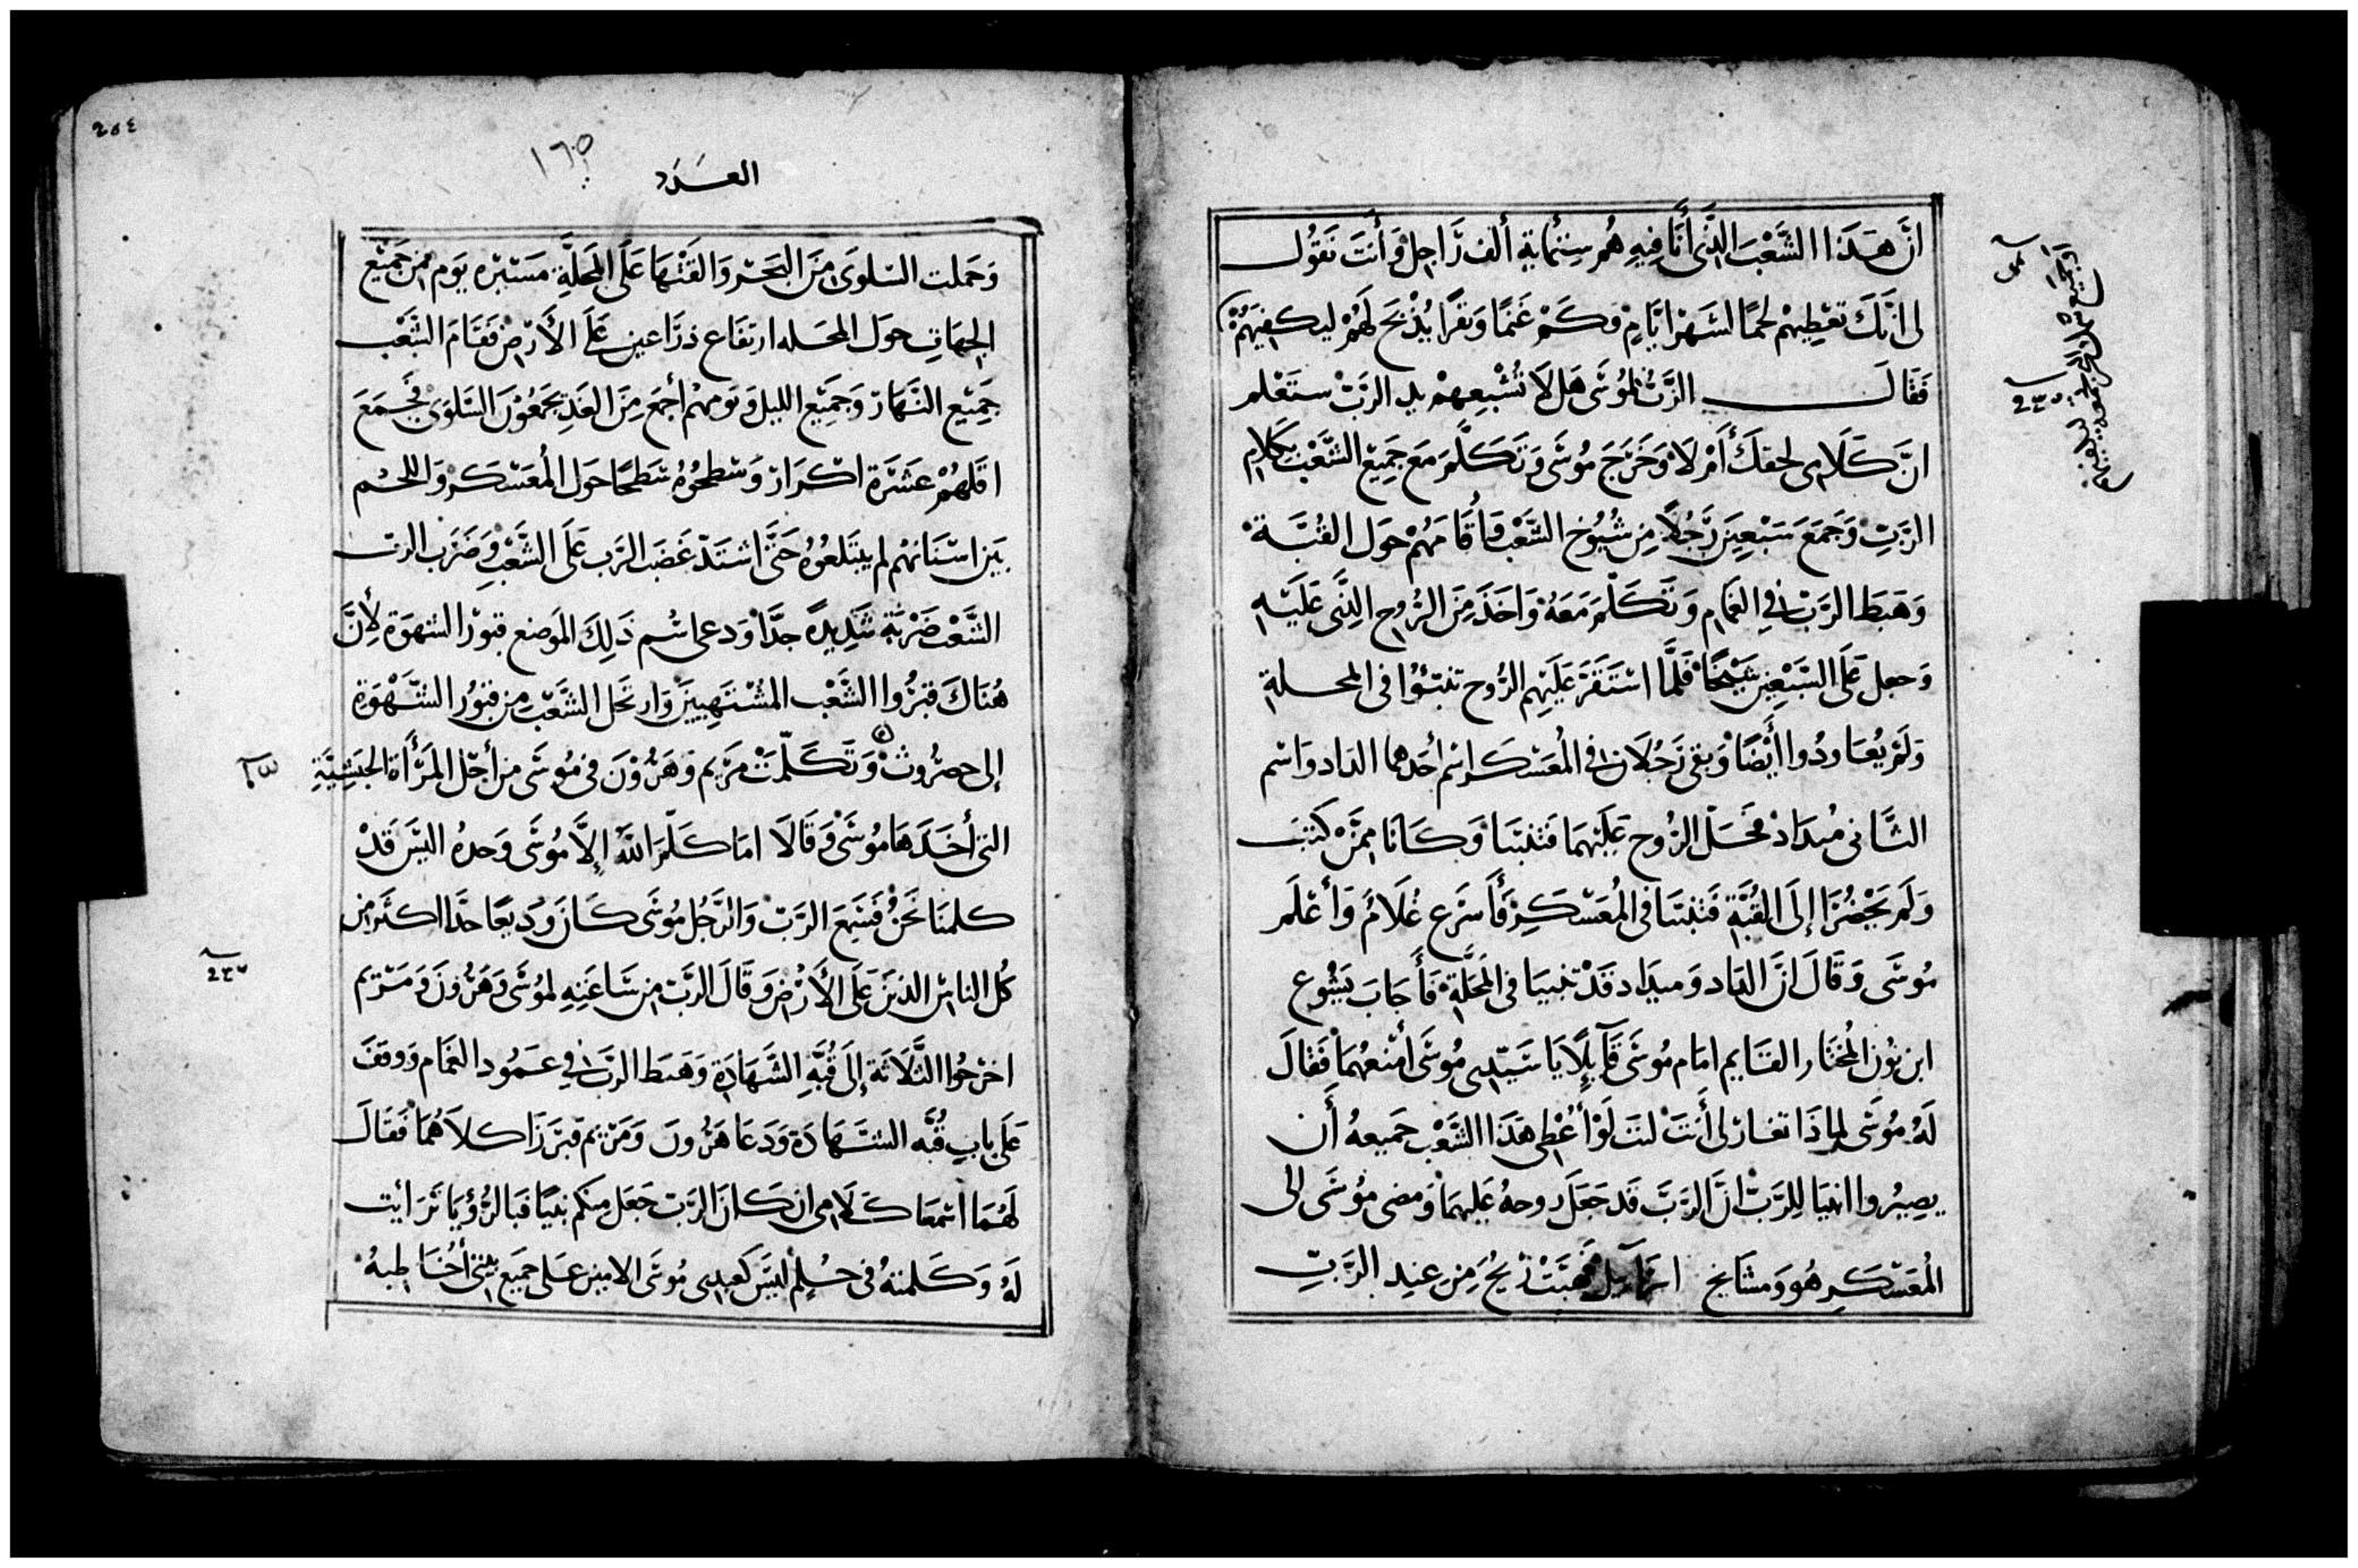 انَّ هَذَا الشَّعْبَ الذَّى أَنَا فِيهِ هُم سِتُّمايةِ ألف رَّاجِلْ وَأَنتَ تَقُول
لى انَّكَ تعْطِيهمْ لحمًا لشَهرْ ايَّامٍ وَكَمْ غَنمًا وَبقرًا يُذْبَحَ لَهُمْ ليكفِيَهُمْ
فَقَالَ الرَّبُ لمُوسَى هَل لَا تُشْبِعهمْ يد الربّ ستَعْلم
انَّ كَلَامِى لحقكَ أَمْ لَا وَخَرَجَ مُوسَى وَتَكَلَّمَ مَعَ جَمِيع الشَّعْب بكَلام
الرَّبِ وَجَمَعَ سَبْعِينَ رَّجُلًا مِن شُيُوخ الشَّعْب فأقَامَهُمْ حَول القُبَّة
وَهَبَط الرَّبّ فِى الغَمَام وَتَكَلَّمَ مَعَهُ وَاخَذَ مِنَ الرُّوح الذَّى عَلَيْهِ
وَجعل عَلَى السَّبْعِين شَيْخًا فَلَمَّا اسْتَقَرَّ عَلَيْهِم الرُّوح تنبئوُا فى المحلة
وَلَمْ يُعَاودُوا أَيْضًا وَبقى رَجُلَان فى المُعَسْكَر اسْم أحَدهما الداد وَاسْم
الثَّانى ميدَادْ فحَلّ الرُّوح عَلَيْهمَا فَتنبَيَا وَكَانَا ممَّنْ كتبَ
وَلَم يَحْضُرَا إلَى القُبَّةِ فَتنبيَا فى المُعَسْكَرِ فَأَسْرَع غُلَامُ وَأَعْلَم
مُوسَى وَقَالَ انَّ الدَاد وَميدَاد قَدْ تنبيَا فى المَحَلَّةِ فَأَجَابَ يَشُوع
ابن نُون المُختَار القَايم امَام مُوسَى قَآيِلًا يَا سَيّدِى مُوسَى أمْنعهُمَا فَقَالَ
لَهُ مُوسَى لِمَاذَا تغَارْ لى أَنتَ ليتَ لَوْ أُعْطى هَذَا الشَّعْب جَميعهُ أَن
يصِيُروا انبيَا لِلرَّبّ انَّ الرَّبَّ قَد جَعَلَ روحهُ عَليهمَا وَمضى مُوسَى الى
المُعَسْكَرِ هُو وَمشَايخ اسرَآييل فَهَبَّتْ رِيحُ مِن عِندِ الرَّبّ
أوَجَميع سَمَك البَحر يجمع ليكفيهم
٢٣٥
٢٥٤
١٦٥
العَدَد
وَحَملت السّلوَى مِنَ البَحَر وَالقَتْهَا عَلَى المَحَلَّةِ مَسَيْرَه يَوم من جَمِيْع
الجِهَاتِ حول المحَله ارتفَاع ذرَاعين عَلَى الأَرْض فَقَامَ الشَّعْب
جَمِيْع النَّهَارْ وَجَمِيْع الليل وَيَومهُم أجْمع مِنَ الغَدِ يَجْمَعُوْنَ السَّلوَى فجَمَعَ
اقلهُمْ عَشَرَة اكْرَارْ وَسْطحُوهُ سَطحًا حَول المُعَسْكَر وَاللحْم
بَين اسْنَانهُم لم يبتَلعُوهُ حَتَّى اشتَدّ غَضَب الرَّب عَلَى الشَّعْب وَضَرَب الربّ
الشَّعْب ضَرْبَة شَدِيدةً جدًّا وَدعى اسْم ذَلِكَ المَوضع قبور الشهوَة لأِنَّ
هُنَاكَ قبَرُوا الشَّعْب المُشْتَهِيينَ وَارتحَل الشَّعْب من قبُور الشَّهْوَة
إلى حصرُوثْ وَتَكَلَّمَتْ مَرْيم وَهَرُوْنَ فى مُوسَى من أجْل المَرْأَة الحَبَشِيَّةِ
التى أخَذَهَا مُوسَى وَقَالَا امَا كَلَّمَ اللَّهَ إلَّا مُوسَى وَحدهُ اليسَ قَدْ
كلمنَا نَحْنُ فَسَمعَ الرَّبّ وَالرَّجُل مُوسَى كَانَ وَديعًا جدًّا اكثَر من
كُل النَاس الذينَ عَلَى الأَرْض وَقَالَ الرَّبّ من سَاعَتِهِ لمُوسَى وَهَرُونَ وَمَرْيم
٢٣٦
اخرجُوا الثَّلَاثَة إلَى قُبَّهِ الشَّهَادَةِ وَهَبَط الرَّبّ فى عَمُود الغَمَام وَوَقفَ
عَلَى بابِ قُبَّه الشَّهَادَة وَدَعَا هَرُونَ وَمَرْيَم فبَرَزَا كلَاهُمَا فَقَالَ
لَهُمَا اسْمعَا كَلَامى ان كَانَ الرَّبّ جَعَل منكم نبيًا فَبالرُّؤيَا تَرَايت
لَهُ وَكَلمتهُ فى حُلْمٍ ليسَ كعبدِى مُوسَى الامين عَلى جَميع بَيْتى أُخَاطبهُ